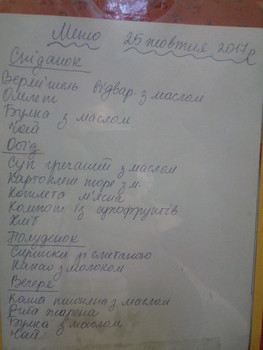 Меню 25 жовтня 2017
Сніданок
Вермішель відвар з маслом
Омлет
Булка з маслом
Чай
Обід
Суп гречаний з маслом
Картопляне пюре з м.
Котлета м'ясна
Компот із сухофруктів
Хліб
Полуденок
Сирники зі сметаною
Какао з молоком
Вечеря
Каша пшенична з маслом
Риба жарена
Булка з маслом
Чай